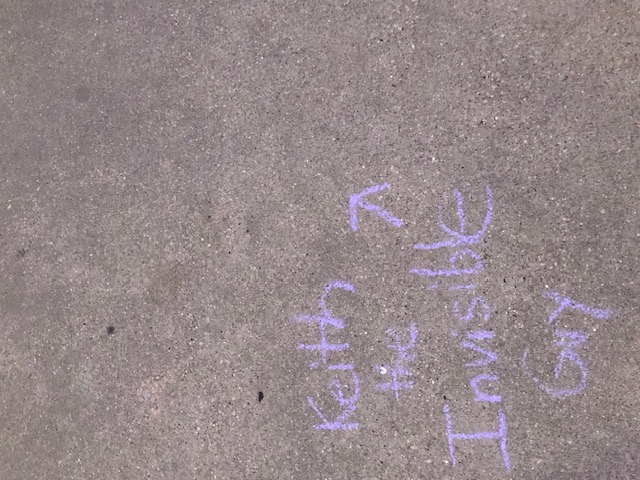 Keith
the
Invisible
Guy